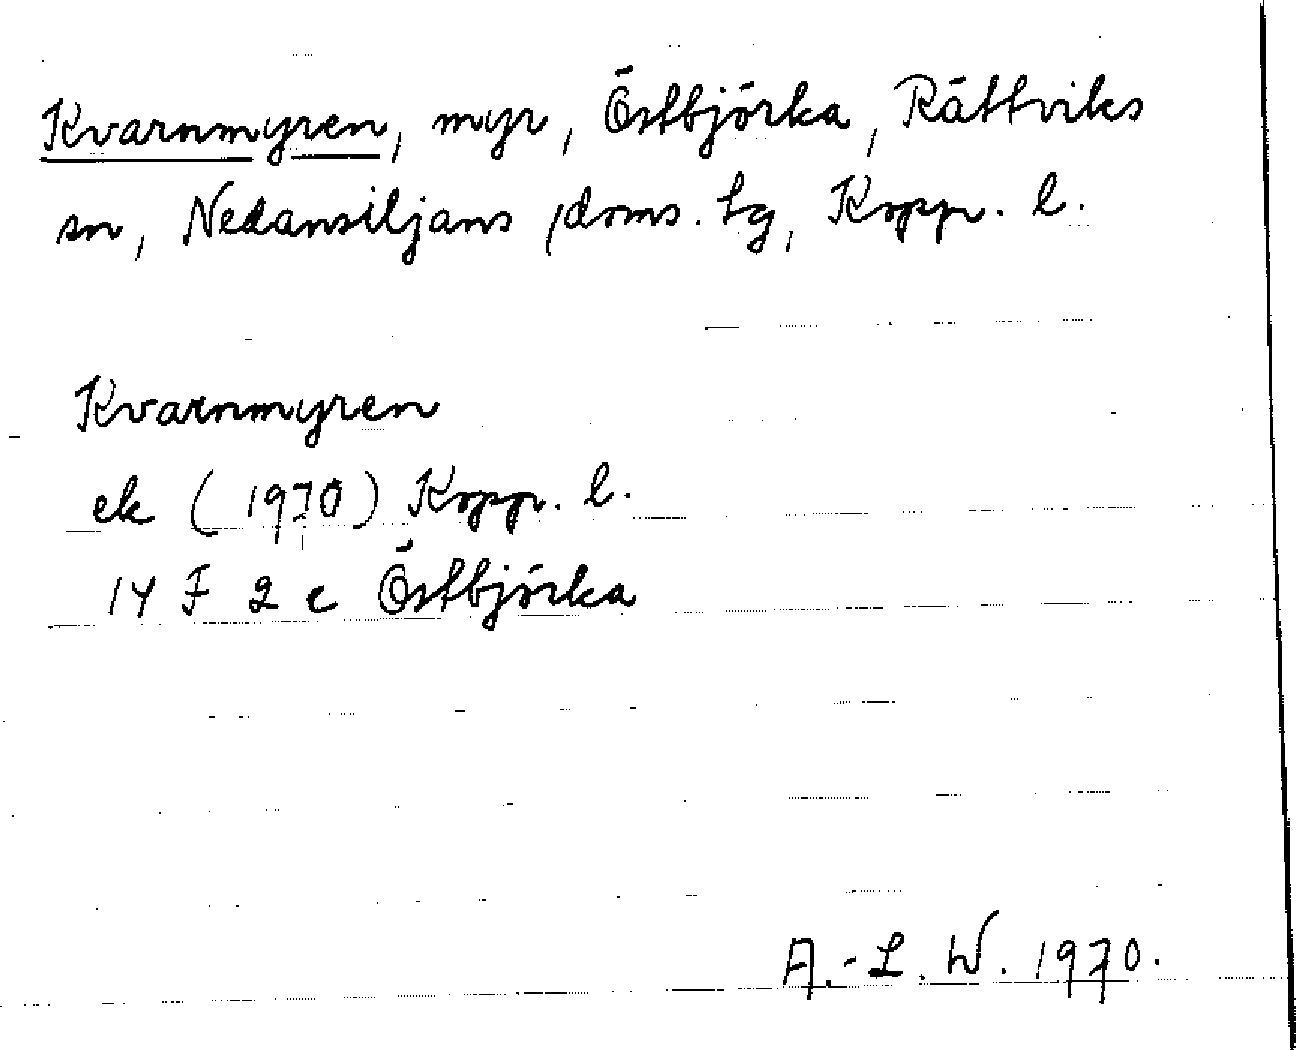 Kvarnmyren, myr, Östbjörka, Rättviks
sn, Nedansiljans doms. tg, Kopp. l.
Kvarnmyren
ek (1970) Kopp. l.
14 F 2 c Östbjörka
A.-L. W. 1970.